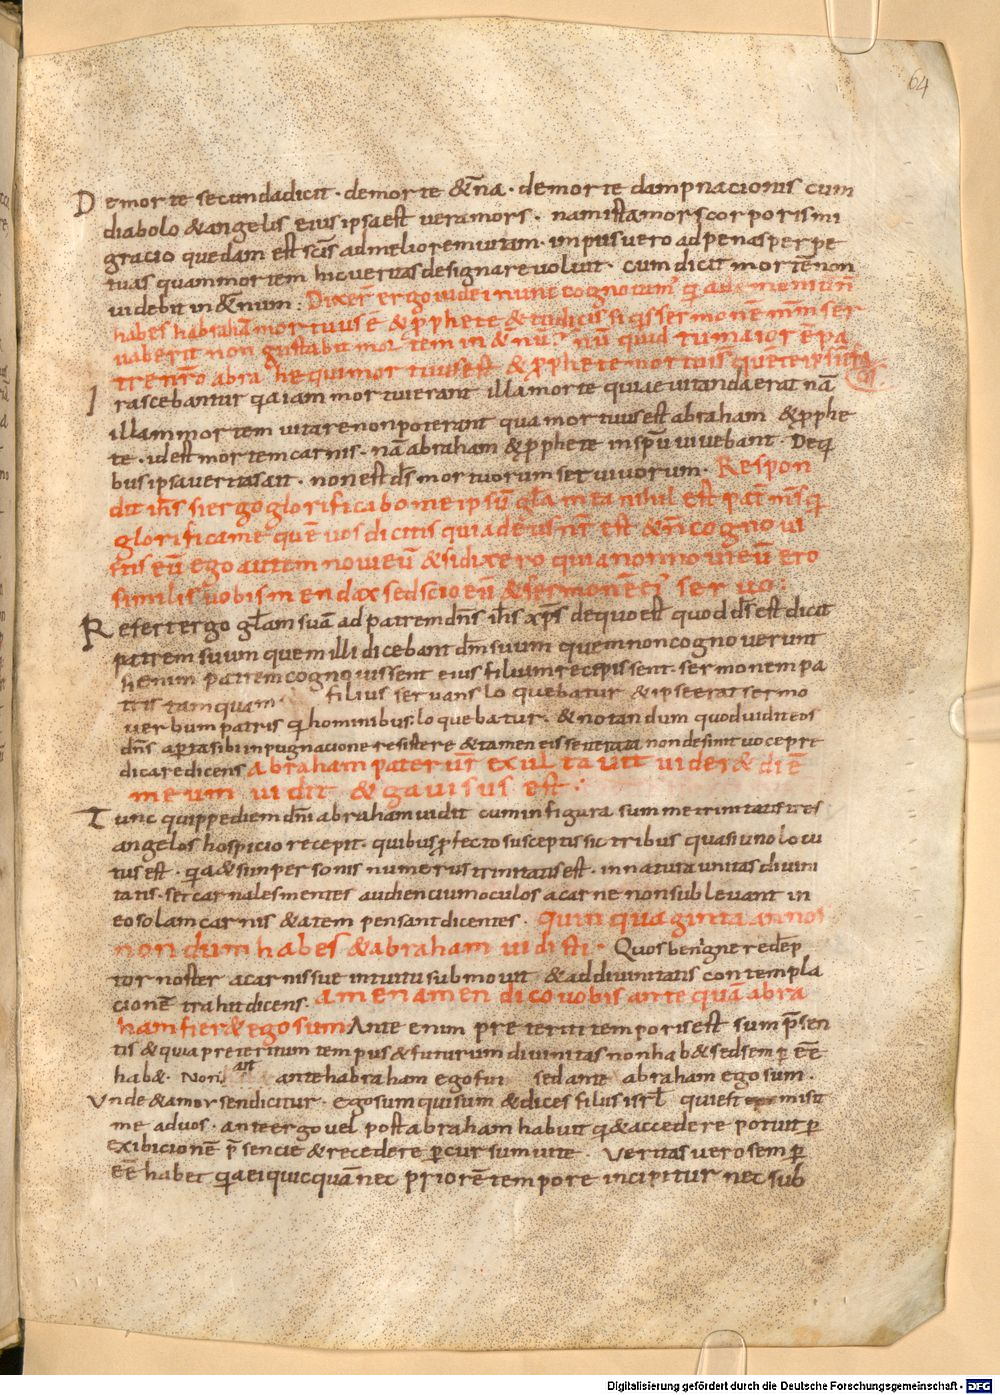 64
De morte secunda dicit · de morte &̄na · de morte dampnacionis cum
diabolo & angelis eius ipsa est vera mors · nam ista mors corporis mi
gracio quedam est sc̄is ad meliorem vitam · impiis vero ad penas perpe
tuas quam mortem hic veritas designare voluit · cum dicit mortē non
videbit in &̄num : Dixer̄ ergo iudei nunc cognovim' q̄a demonium
habes habrahā mortuus ē & p̄phete & tu dicis si q̄s sermonē meum ser
vaberit non gustabit mortem in &̄nū · nū quid tu maior ē pa
tre nr̄o abrahe qui mortuus est & p̄phete mortui s' que te ipsū
I rascebantur q̄a iam mortui erant illa morte quia evitanda erat nā
illam mortem vitare non poterant qua mortuus est abraham & p̄phe
te · id est mortem carnis · nā abraham & p̄phete in sp̄u vivebant · De q̄
bus ipsa veritas ait · non est d̄s mortuorum set vivorum · Respon
dit ih̄s si ergo glorifico me ipsū gl̄a mea nihil est pat̄ m̄s q̄
glorifica me quē vos dicitis quia deus nr̄ est & n̄ cogno vi
stis eū ego autem novi eū & si dixero quia non novi eū ero
similis vobis mendax sed scio eū & sermonē ei' servo :
Refert ergo gl̄am suā ad patrem dn̄s ih̄s xp̄s de quo est quod d̄s est dicit
patrem suum quem illi dicebant dm̄ suum quem non cogno verunt
si enim patrem cognovissent eius filium recepissent · sermonem pa
tris tamquam filius servans loquebatur & ipse erat sermo
verbum patris q̄ hominibus loquebatur · & notandum quod vidit eos
dn̄s aperta sibi inpugnacione resistere & tamen eis se veritatis non desinit voce pre
dicare dicens Abraham pater vr̄ exultavit vider& diē
meum vidit & gavisus est :
Tunc quippe diem dn̄i abraham vidit cum in figura summe trinitatis tres
angelos hospicio recepit · quibus p̄fecto susceptis sic tribus quasi uno locu
tus est · q̄a & si in personis numerus trinitatis est · in natura unitas divini
tatis · set carnales mentes audiencium oculos a carne non sublevant in
eo solam carnis &atem pensant dicentes · Quinquaginta annos
nondum habes & abraham vidisti · Quos benigne redēp
tor noster a carnis sue intuitu submovit & ad divinitatis contempla
cionē trahit dicens · amen amen dico vobis ante quā abra
ham fier& ego sum Ante enim preteriti temporis est sum p̄sen
tis & quia preteritum tempus & futurum divinitas non hab& sed semp̄ eē
hab& · Non ait ante habraham ego fui sed ante abraham ego sum ·
Unde & a morsen dicitur · ego sum qui sum & dices filiis isrl̄ qui est misit
me ad vos · ante ergo vel post abraham habuit q̄ & accedere potuit p̄
exibicionē p̄sencie & recedere p̄ cursum vite · Veritas vero semp̄
eē habet q̄a ei quicquā nec priorē tempore incipitur nec sub
Digitalisierung gefördert durch die Deutsche Forschungsgemeinschaft - DFG